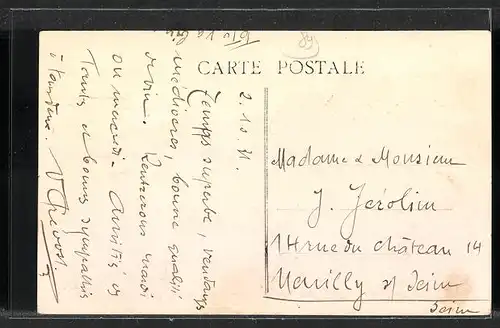 89
CARTE POSTALE
2.10.31.
Temps superbe, vendanges
médiocres, bonne qualité
de vin. Rentrerons mardi
ou mercredi. Amitiés et
Toutes et bonnes sympathies
à tous deux. V Prévost.
Madame & Monsieur
J. Jérolim
14 rue du château 14
Neuilly s/ Seine
Seine